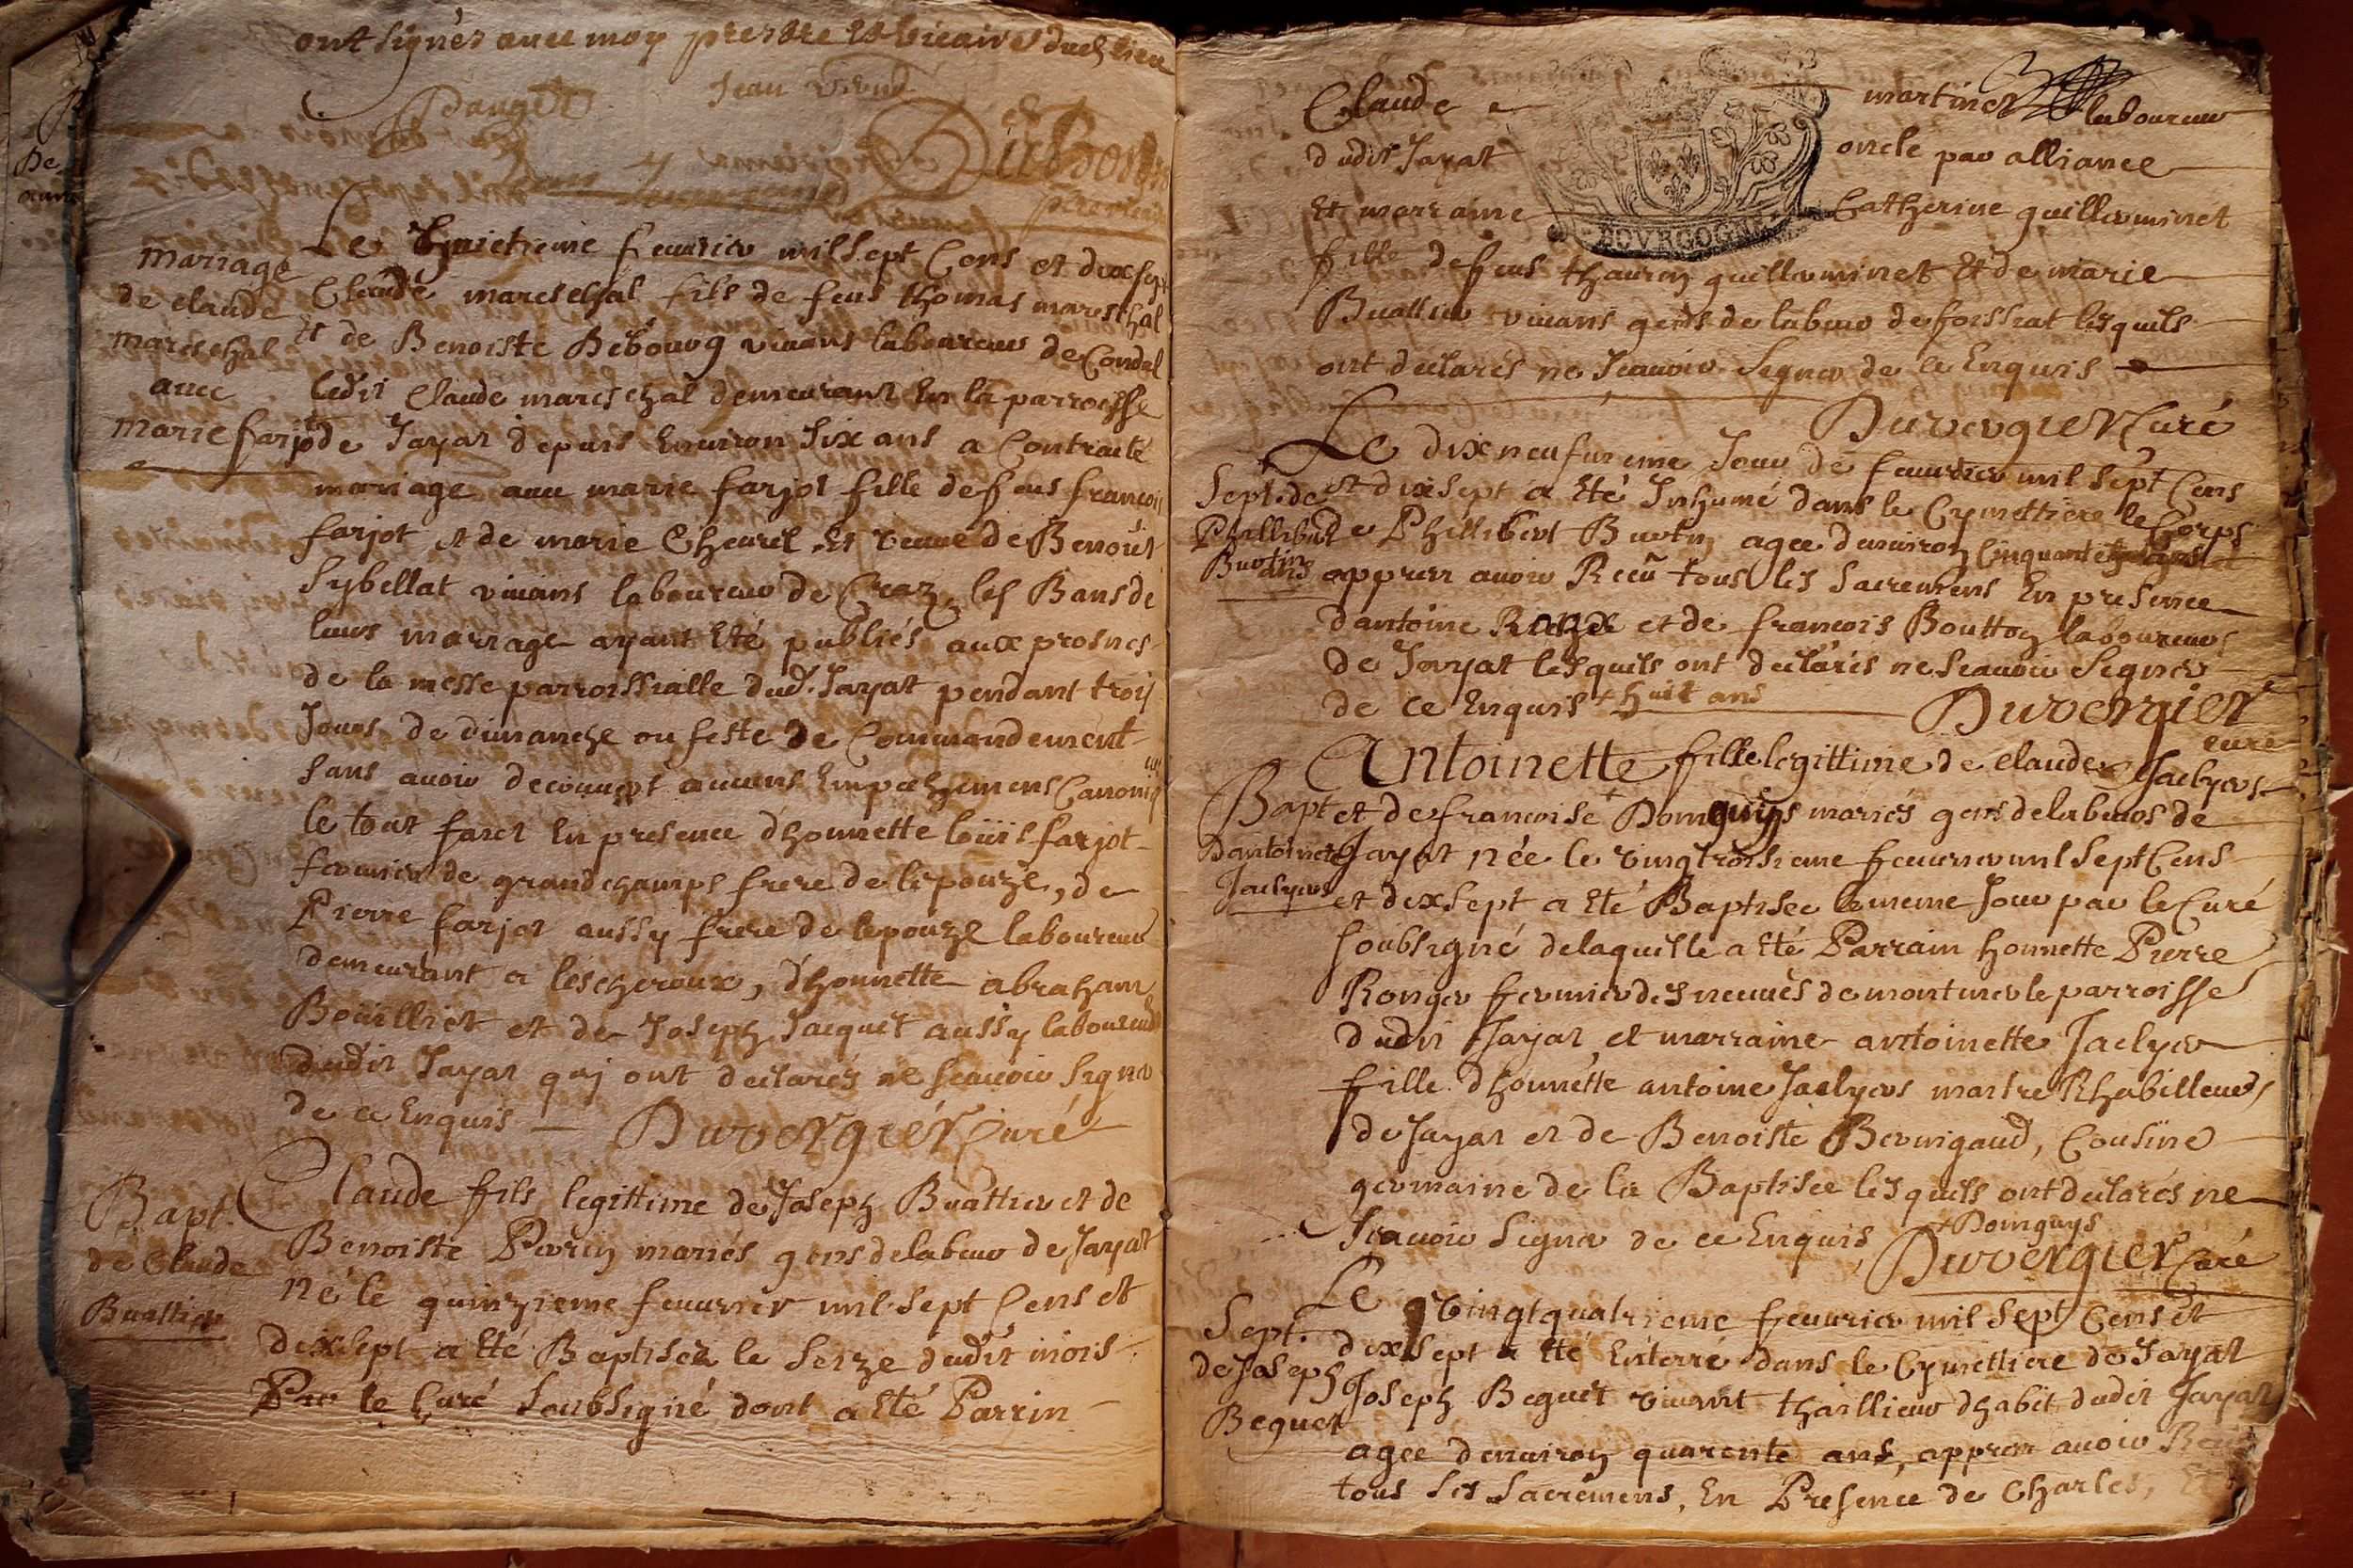 ont signés avec moy prestre et vicaire dud. lieu
Jean
Dauget
Dubord
mariage
de claude
mareschal
avec
marie farjot
Le huictieme feuurier mil sept Cens et dix sept
Claude mareschal fils de feus thomas mareschal
et de Benoiste Debourg viuans laboureurs de Condal
ledit Claude mareschal demeurant En la parroisse
de Jayat depuis Enuiron six ans a Contracté
mariage auec marie farjot fille de feus francois
farjot et de marie Cheurel Et veuue de Benoist
Sybellat viuans laboureur de Craz, les Bans de
leurs marriage ayant Eté publiés aux prosnes
de la messe parroissialle dud. Jayat pendant trois
Jours de dimanche ou feste de Commandement
sans auoir decouuert aucuns Empechemens Canoniq
le tout faict En presence d'honnette loüis farjot
fermier de grandchamps frere de l'epouze, de
Pierre farjot aussy frere de l'epouze laboureur
demeurant a lescheroux, d'honnette abraham
Bouilliet et de Joseph Jacquet aussy laboureurs
dudit Jayat quj ont declarés ne scauoir signer
de ce Enquis — Duvergier Curé
Bapt.
de Claude
Buattier
Claude fils legittime de Joseph Buattier et de
Benoiste Perrin mariés gens de labeur de Jayat
né le quinzieme feuurier mil sept Cens et
dix sept a été Baptisée le seize dudit mois
Par le Curé soubsigné dont a Eté Parrin
Claude martinet laboureur
dudit Jayat oncle par alliance
Et marraine Catherine guilleminet
BOVRGOGNE
fille de feus thaurin guilleminet Et de marie
Buattier viuans gens de labeur de foissiat lesquels
ont declarés ne scauoir Signer de ce Enquis
Duvergier Curé
Sept. de
Phillibert
Burtin
Le dix neufuieme Jour de feuurier mil sept Cens
et dix sept a Eté Inhumé dans le Cymettiere le Corps
de Phillibert Burtin agee denuiron Cinquante
ans appres auoir Receü tous les sacremens En presence
dantoine et de francois Boutton laboureurs
de Jayat lesquels ont declarés ne scauoir Signer
de ce Enquis + huit ans Duvergier
curé
Bapt
Dantoinette
Jaclyer
Antoinette fille legittime de claude Jaclyer
et de francoise Domguys mariés gens de labeur de
Jayat née le vingtroisieme feuurier mil sept Cens
et dix sept a Eté Baptisée le meme Jour par le Curé
soubsigné de laquelle a Eté Parrain honnette Pierre
Ronger fermier des neuues de montmerle parroisse
dudit Jayat et marraine antoinette Jaclyer
fille d'honnette antoine Jaclyer maitre Rhabilleur
de Jayat et de Benoiste Bernigaud, Cousine
germaine de la Baptisée lesquels ont declarés ne
scauoir signer de ce Enquis + Domguys
Duvergier Curé
Sept.
de Joseph
Beguet
Le vingt quatrieme feuurier mil sept Cens et
dix sept a Eté Enterré dans le Cymettiere de Jayat
Joseph Beguet viuant thaillieur dhabit dudit Jayat
agee denuiron quarente ans, appres auoir Receu
tous les sacremens, En Presence de Charles, Et